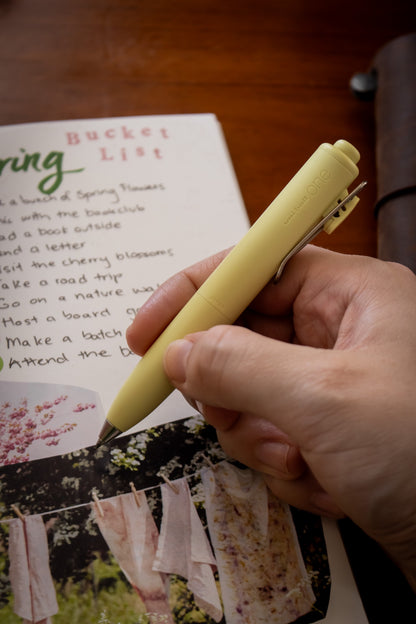 Bucket
List
ring
a bunch of Spring Flowers
with the bookclub
ad a book outside
nd a letter
isit the cherry blossoms
ake a road trip
Go on a nature wa
Host a board g
Make a batch
Attend the b
uni-ball one